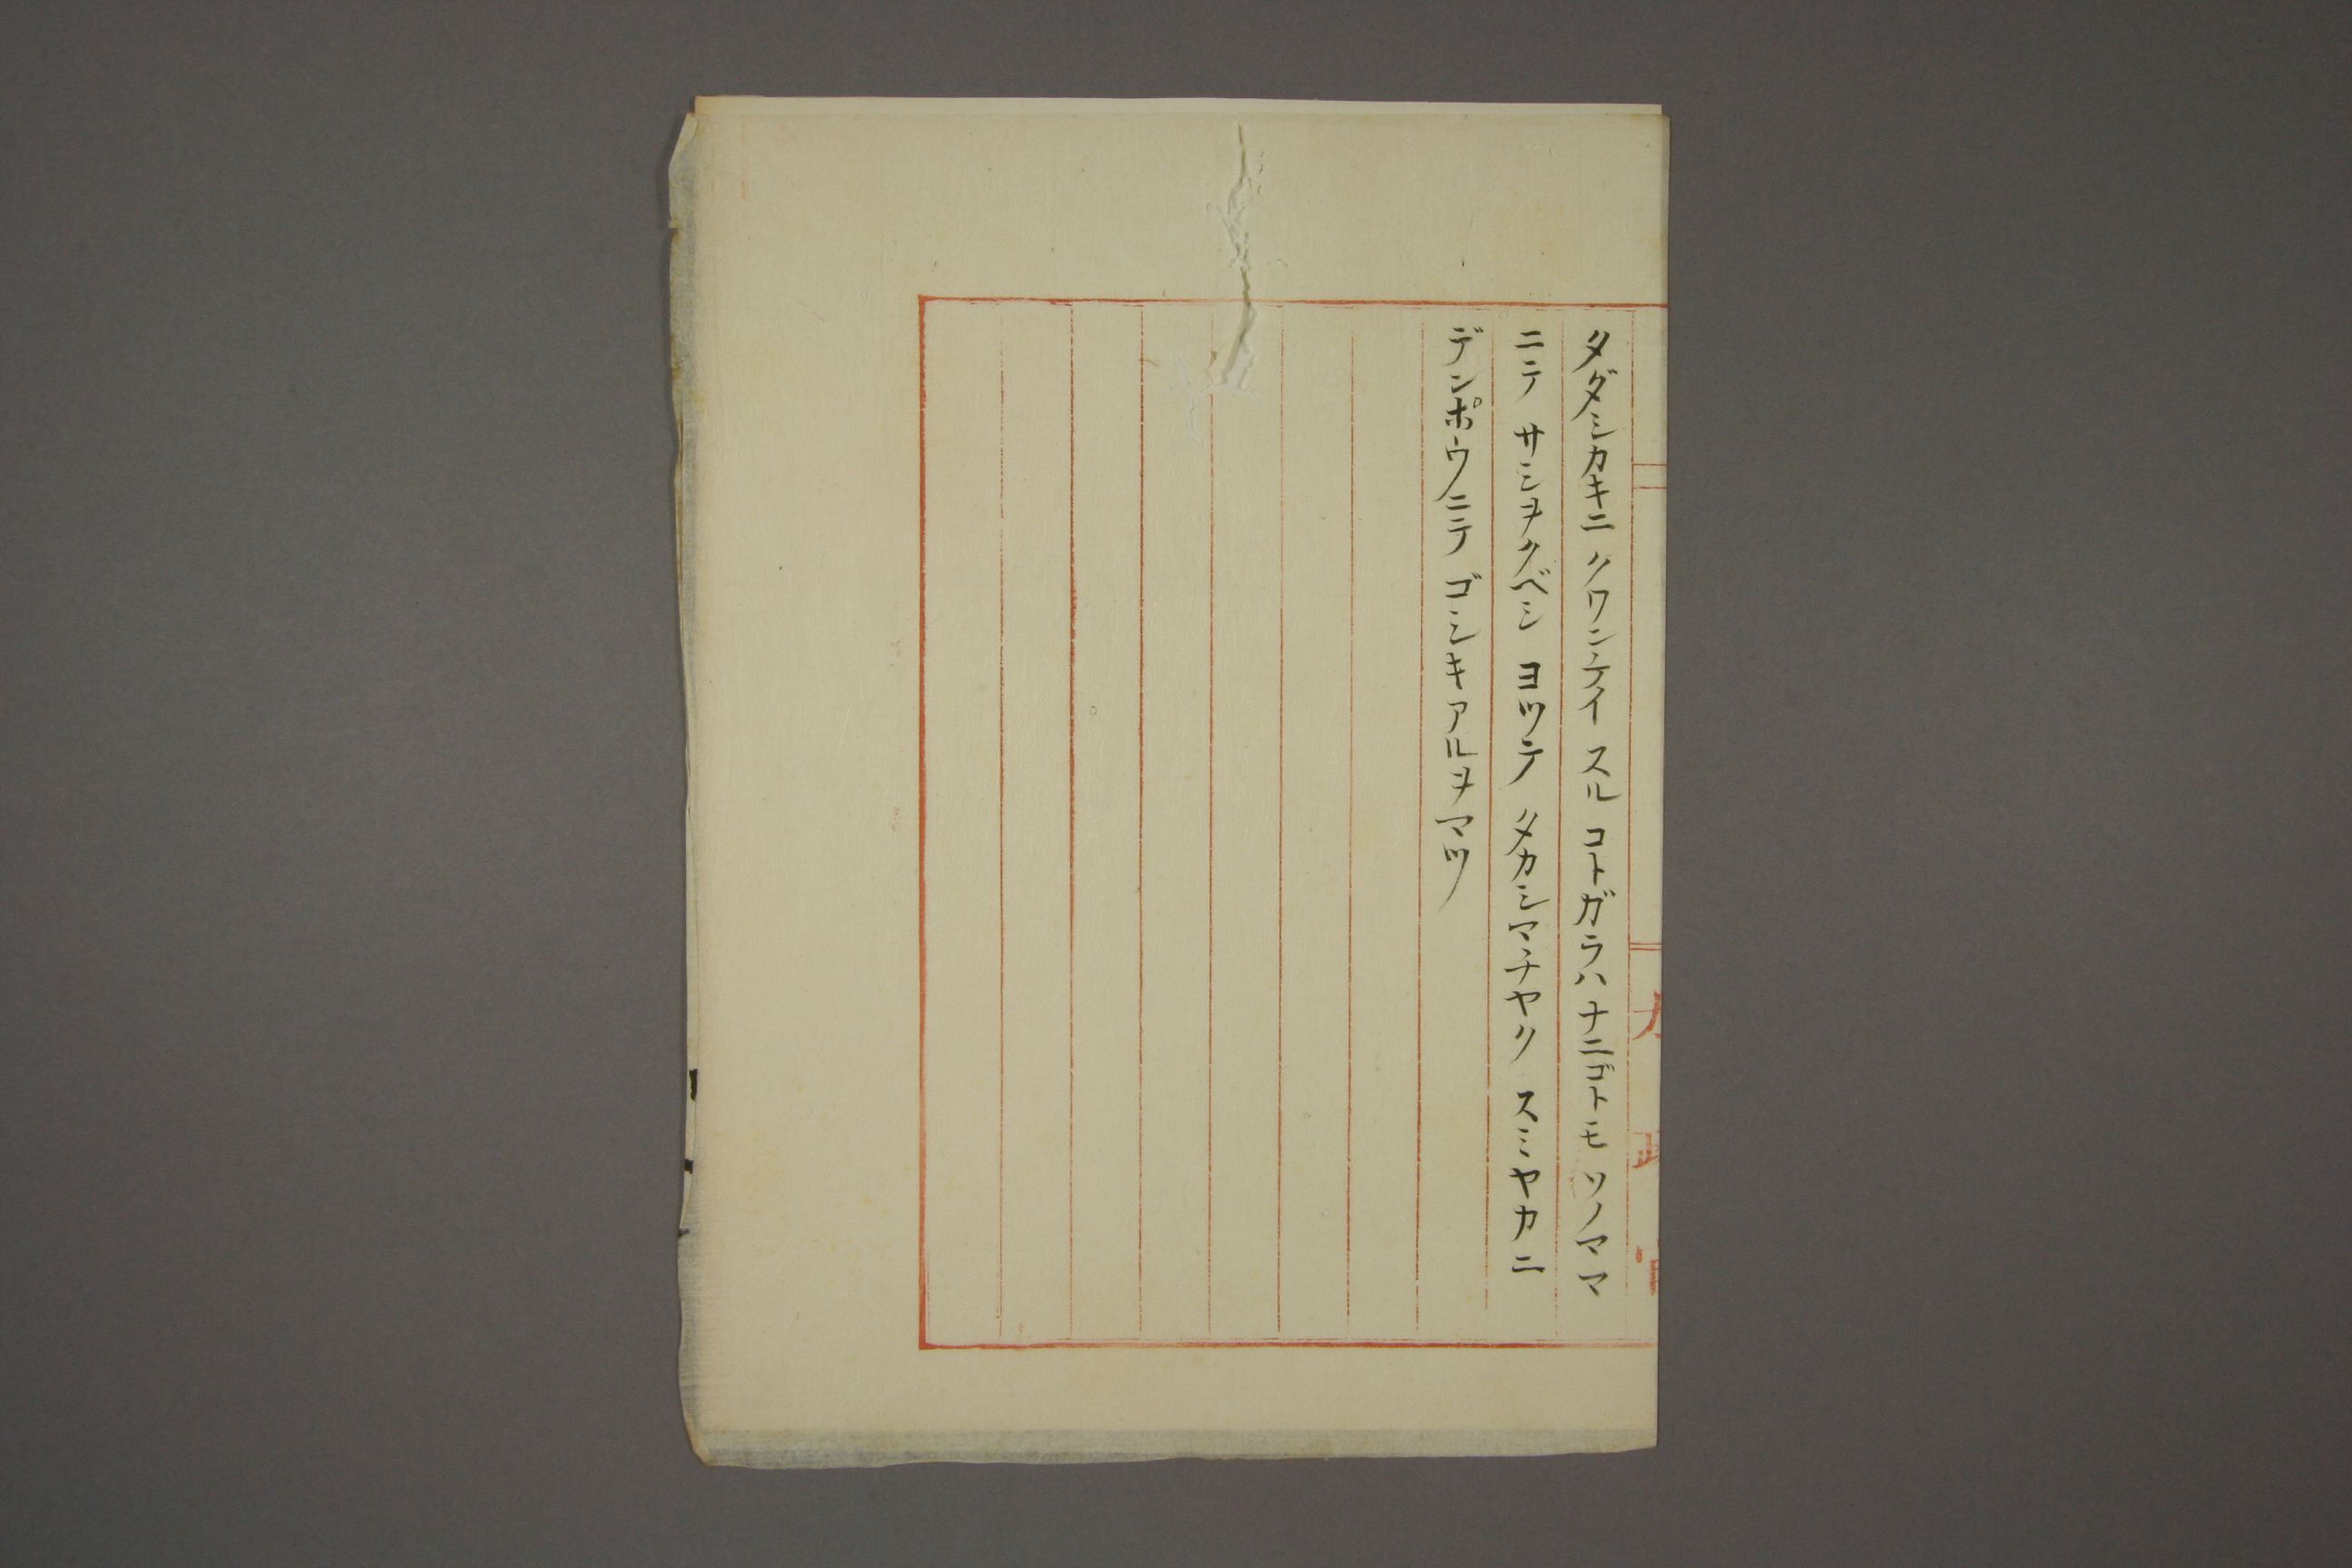 タダシカキニ クワンケイ スル コトガラハ ナニゴトモ ソノママ
ニテ サシヲクベシ ヨツテ タカシママチヤク スミヤカニ
デンポウニテ ゴシキアルヲマツ